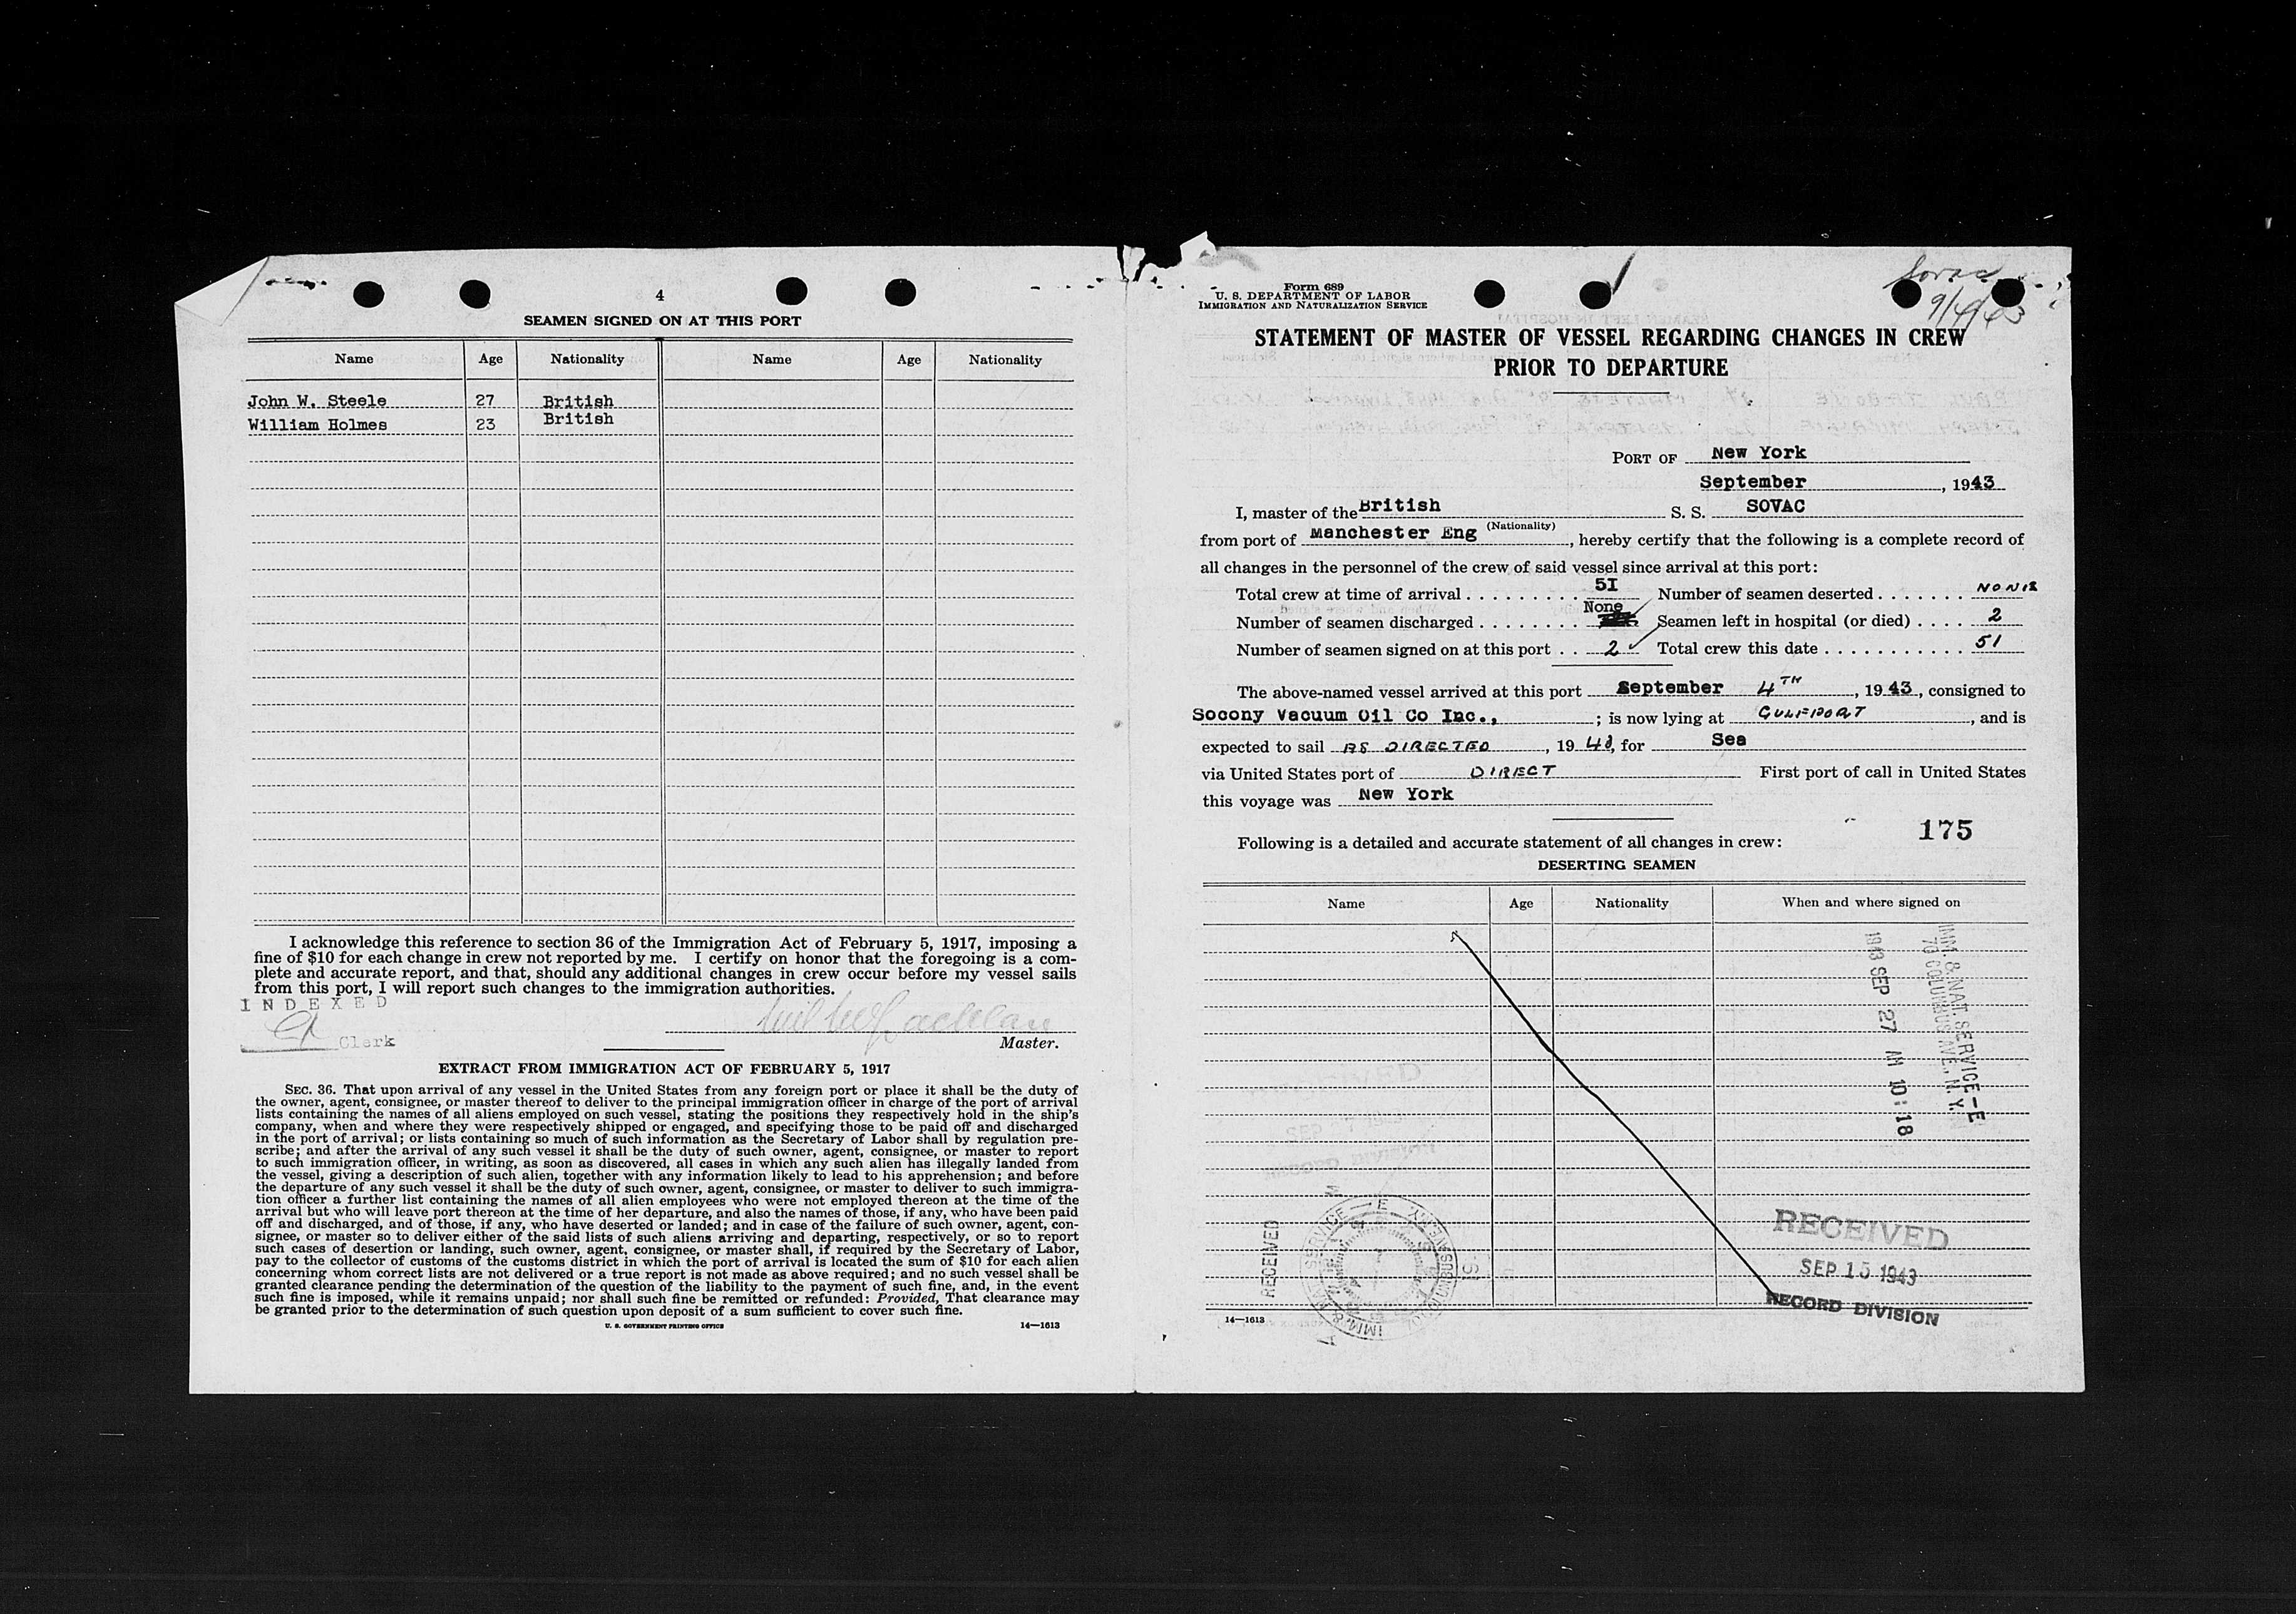 4
SEAMEN SIGNED ON AT THIS PORT
Name Age Nationality Name Age Nationality
John W. Steele 27 British
William Holmes 23 British
I acknowledge this reference to section 36 of the Immigration Act of February 5, 1917, imposing a
fine of $10 for each change in crew not reported by me. I certify on honor that the foregoing is a com-
plete and accurate report, and that, should any additional changes in crew occur before my vessel sails
from this port, I will report such changes to the immigration authorities.
INDEXED
Clerk
Master.
EXTRACT FROM IMMIGRATION ACT OF FEBRUARY 5, 1917
SEC. 36. That upon arrival of any vessel in the United States from any foreign port or place it shall be the duty of
the owner, agent, consignee, or master thereof to deliver to the principal immigration officer in charge of the port of arrival
lists containing the names of all aliens employed on such vessel, stating the positions they respectively hold in the ship's
company, when and where they were respectively shipped or engaged, and specifying those to be paid off and discharged
in the port of arrival; or lists containing so much of such information as the Secretary of Labor shall by regulation pre-
scribe; and after the arrival of any such vessel it shall be the duty of such owner, agent, consignee, or master to report
to such immigration officer, in writing, as soon as discovered, all cases in which any such alien has illegally landed from
the vessel, giving a description of such alien, together with any information likely to lead to his apprehension; and before
the departure of any such vessel it shall be the duty of such owner, agent, consignee, or master to deliver to such immigra-
tion officer a further list containing the names of all alien employees who were not employed thereon at the time of the
arrival but who will leave port thereon at the time of her departure, and also the names of those, if any, who have been paid
off and discharged, and of those, if any, who have deserted or landed; and in case of the failure of such owner, agent, con-
signee, or master so to deliver either of the said lists of such aliens arriving and departing, respectively, or so to report
such cases of desertion or landing, such owner, agent, consignee, or master shall, if required by the Secretary of Labor,
pay to the collector of customs of the customs district in which the port of arrival is located the sum of $10 for each alien
concerning whom correct lists are not delivered or a true report is not made as above required; and no such vessel shall be
granted clearance pending the determination of the question of the liability to the payment of such fine, and, in the event
such fine is imposed, while it remains unpaid; nor shall such fine be remitted or refunded: Provided, That clearance may
be granted prior to the determination of such question upon deposit of a sum sufficient to cover such fine.
U. S. GOVERNMENT PRINTING OFFICE 14—1613
Form 689
U. S. DEPARTMENT OF LABOR
IMMIGRATION AND NATURALIZATION SERVICE
Sovac
9/4/43
STATEMENT OF MASTER OF VESSEL REGARDING CHANGES IN CREW
PRIOR TO DEPARTURE
PORT OF New York
September, 1943
I, master of the British S. S. SOVAC
(Nationality)
from port of Manchester Eng, hereby certify that the following is a complete record of
all changes in the personnel of the crew of said vessel since arrival at this port:
Total crew at time of arrival . . . . . . . . . 51 Number of seamen deserted . . . . . . . NONE
Number of seamen discharged . . . . . . . . None Seamen left in hospital (or died) . . . . 2
Number of seamen signed on at this port . . 2 Total crew this date . . . . . . . . . . . 51
The above-named vessel arrived at this port September 4TH, 1943, consigned to
Socony Vacuum Oil Co Inc., ; is now lying at GULFPORT, and is
expected to sail AS DIRECTED, 1943, for Sea
via United States port of DIRECT First port of call in United States
this voyage was New York
175
Following is a detailed and accurate statement of all changes in crew:
DESERTING SEAMEN
Name Age Nationality When and where signed on
IMM. & NAT. SERVICE-E
70 COLUMBUS AVE. N.Y.
1943 SEP 27 AM 10:18
RECEIVED
RECEIVED
SEP 15 1943
RECORD DIVISION
14—1613